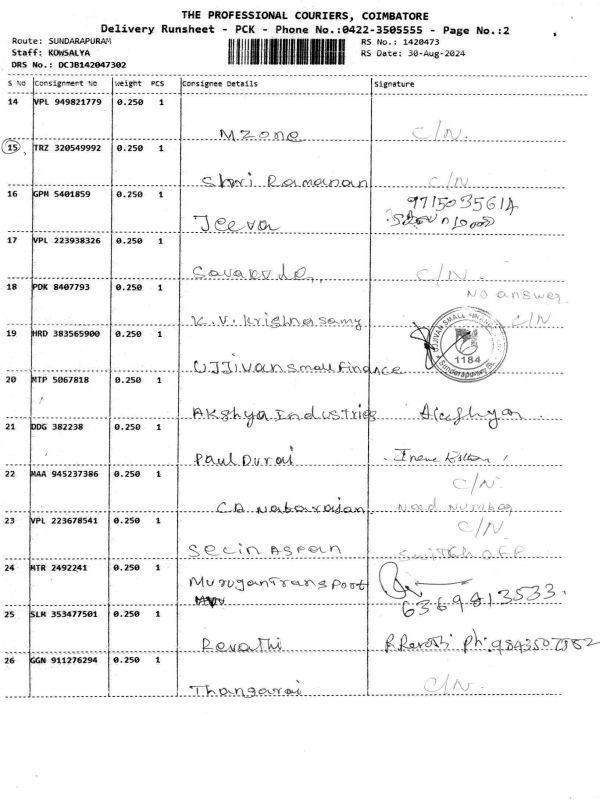 THE PROFESSIONAL COURIERS, COIMBATORE
Delivery Runsheet - PCK - Phone No.:0422-3505555 - Page No.:2
Route: SUNDARAPURAM
RS No.: 1420473
Staff: KOWSALYA
RS Date: 30-Aug-2024
DRS No.: DCJB142047302
S No Consignment No Weight PCS Consignee Details Signature
14 VPL 949821779 0.250 1
Mzone C/N.
15 TRZ 320549992 0.250 1
Shri Ramanan C/N
16 GPM 5401859 0.250 1
9715035614
Jeeva
17 VPL 223938326 0.250 1
C/N.
18 PDK 8407793 0.250 1
No answer
K.V. Krishnasamy C/N
19 HRD 383565900 0.250 1
1184
UJJivan small Finance
20 MTP 5067818 0.250 1
Akshya Industries Akshya
21 DDG 382238 0.250 1
Paul Durai
22 MAA 945237386 0.250 1
C/N.
Number
23 VPL 223678541 0.250 1
C/N
Switch off
24 MTR 2492241 0.250 1
Murugan Transport
6369813533.
25 SLM 353477501 0.250 1
Revathi R.Revathi ph:
26 GGN 911276294 0.250 1
Thangaraj C/N.